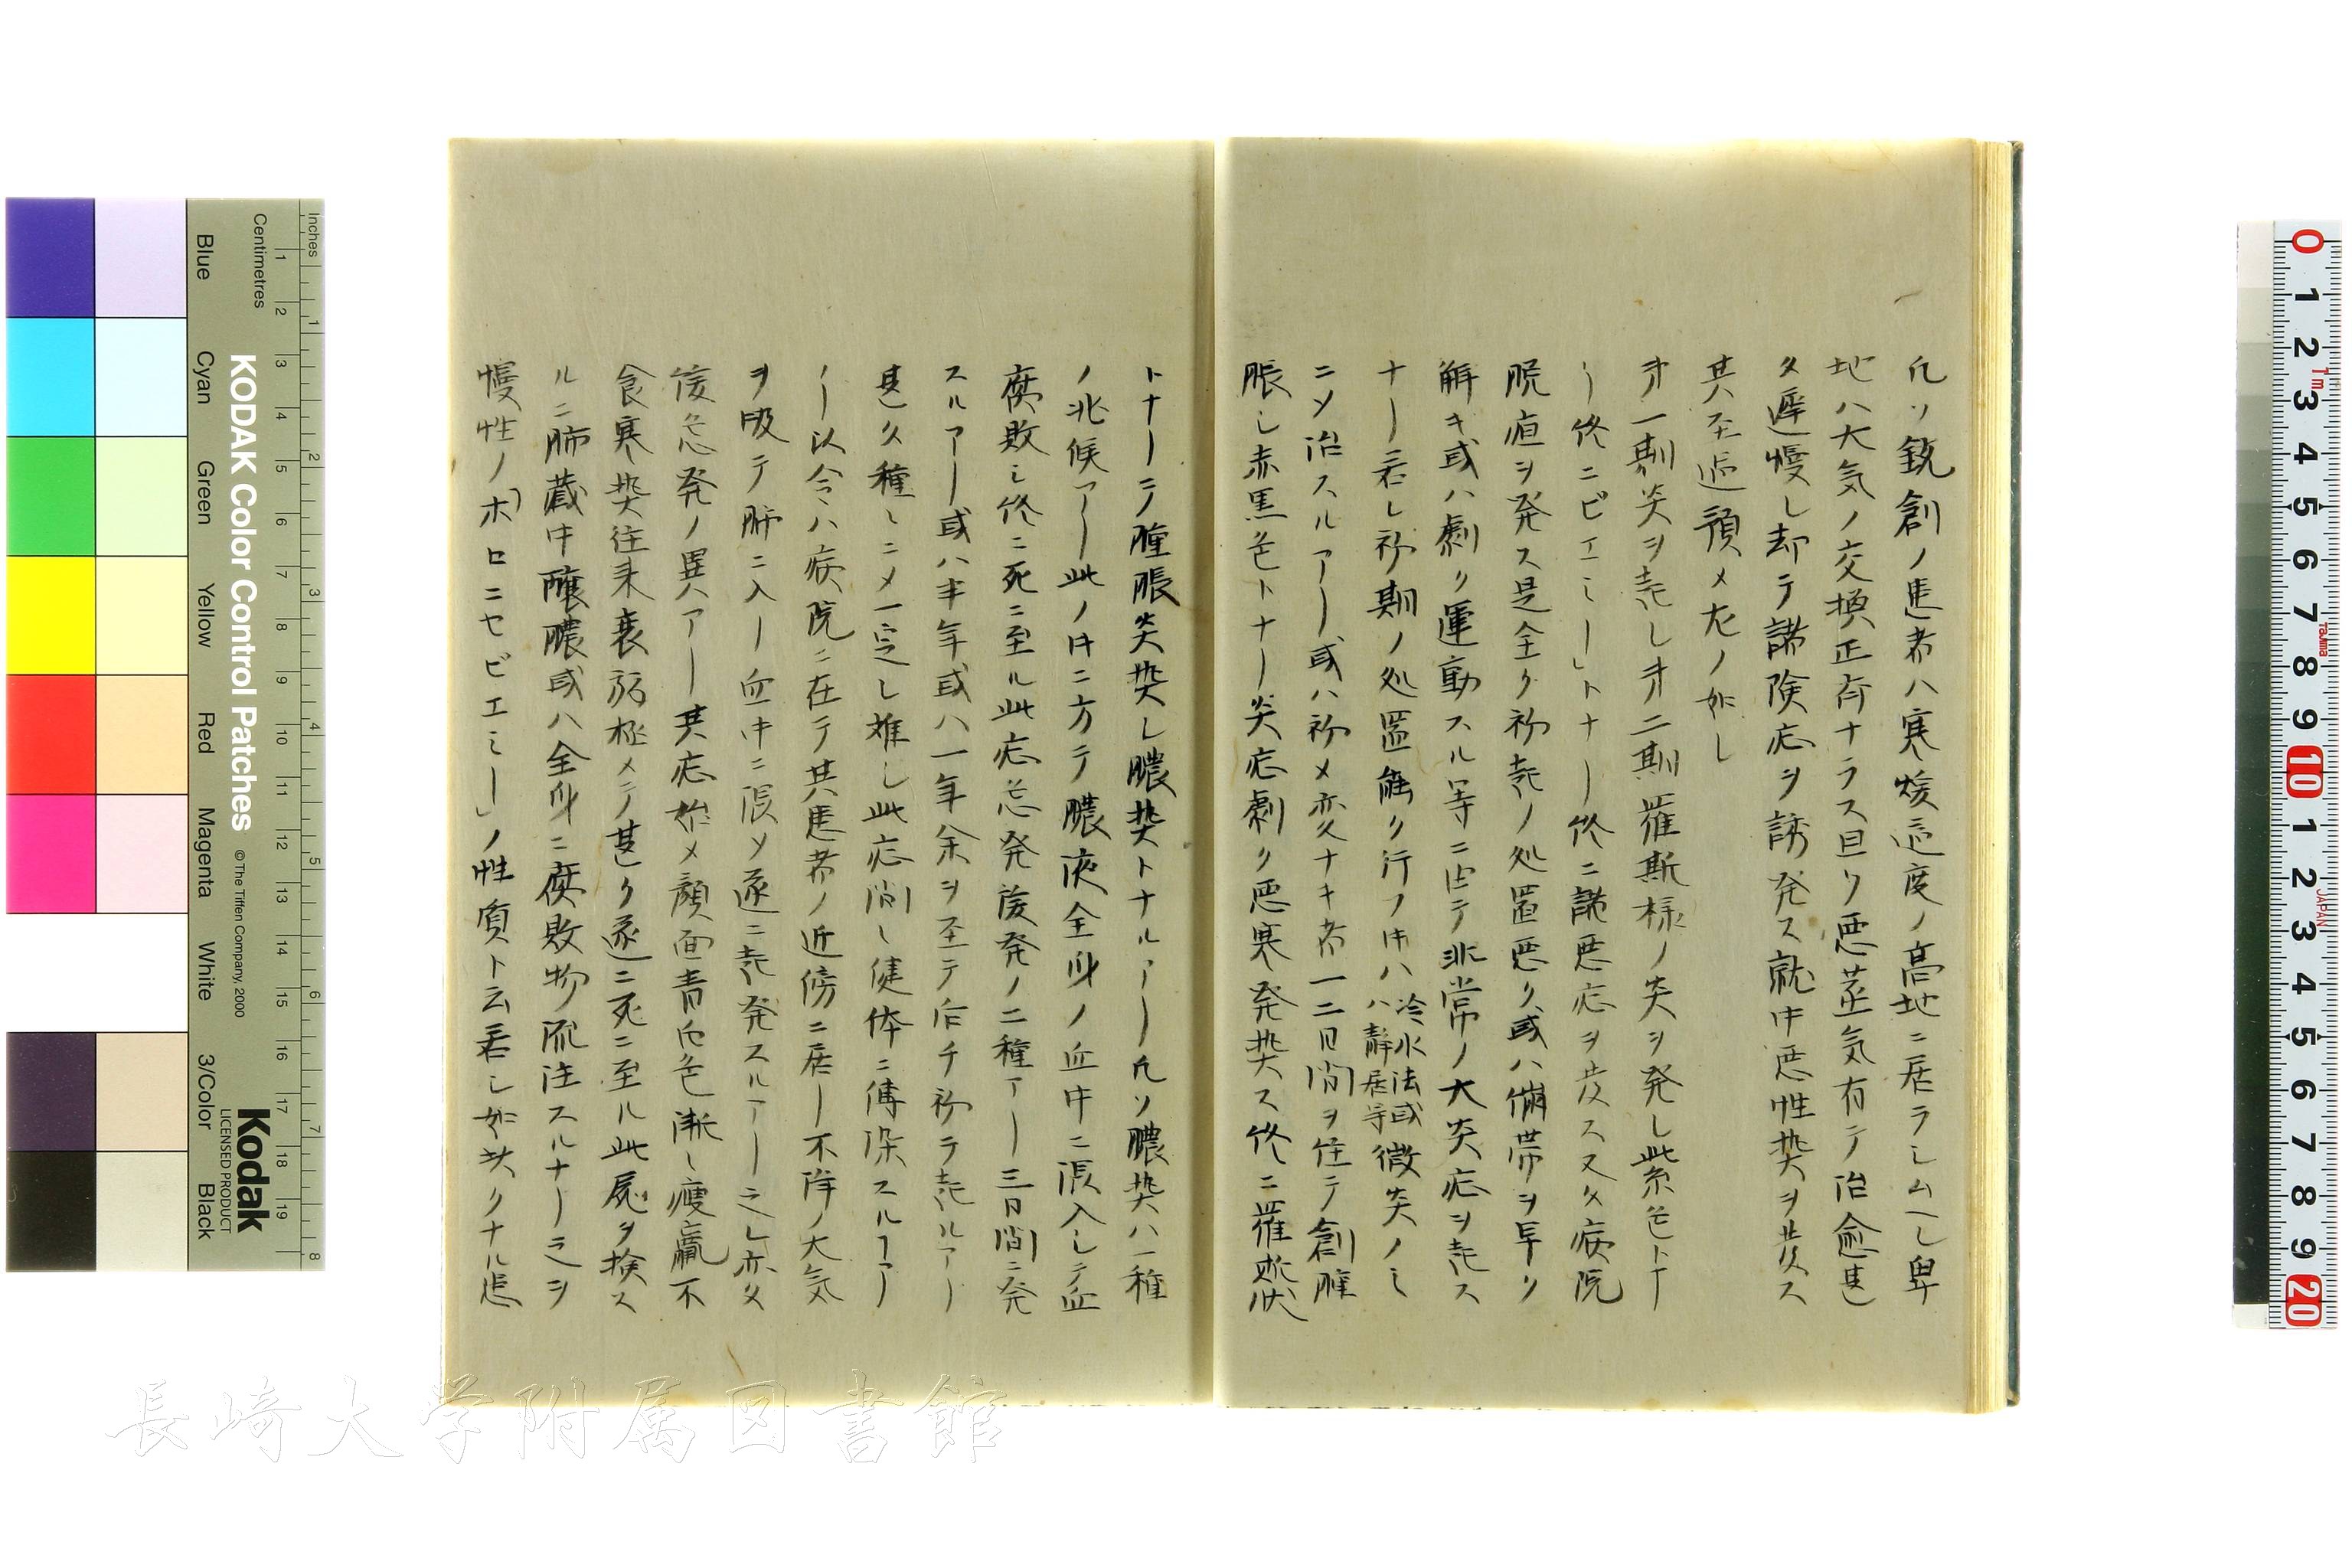 凡ソ銃創ノ患者ハ寒煖適度ノ高地ニ居ラシムヘシ卑
地ハ大気ノ交換正斉ナラス且ツ悪蒸気有テ治愈甚
タ遅慢シ却テ諸険症ヲ誘発ス就中悪性熱ヲ発ス
其至適預メ左ノ如シ
第一期炎ヲ起シ第二期羅斯様ノ炎ヲ発シ紫色トナ
リ終ニピエミー」トナリ終ニ諸悪症ヲ発ス又タ病院
脱疽ヲ発ス是全ク初起ノ処置悪ク或ハ繃帯ヲ早ク
解キ或ハ劇ク運動スル等ニ由テ非常ノ大炎症ヲ起ス
ナリ若シ初期ノ処置能ク行フ时ハ冷水法或ハ静居等微炎ノミ
ニソ治スルアリ或ハ初メ変ナキ者一二日間ヲ住テ創腫
脹シ赤黒色トナリ炎症劇ク悪寒発熱ス終ニ羅斯状
トナリテ腫脹炎熱シ膿熱トナルアリ凡ソ膿熱ハ一種
ノ兆候アリ此ノ时ニ方テ膿液全身ノ血中ニ混入シテ血
腐敗シ終ニ死ニ至ル此症急発後発ノ二種アリ三日間ニ発
スルアリ或ハ半年或ハ一年余ヲ至テ后チ初テ起ルアリ
甚タ種々ニメ一定シ難シ此症間々健体ニ傳染スルヿア
リ以令ハ病院ニ在テ其患者ノ近傍ニ居リ不降ノ大気
ヲ吸テ肺ニ入リ血中ニ混ソ遂ニ起発スルアリ之レ亦タ
後急発ノ異アリ其症始メ顔面青白色漸々瘦羸不
食寒熱往来衰弱極メテ甚ク遂ニ死ニ至ル此屍ヲ検ス
ルニ肺蔵中醸膿或ハ全身ニ腐敗物ノ流注スルナリラヲ
慢性ノホロニセピエミー」ノ性質ト云若シ如此クナル患
Inches
Centimetres
KODAK Color Control Patches
© The Tiffen Company, 2000
Kodak
LICENSED PRODUCT
Blue
Cyan
Green
Yellow
Red
Magenta
White
3/Color
Black
長崎大学附属図書館